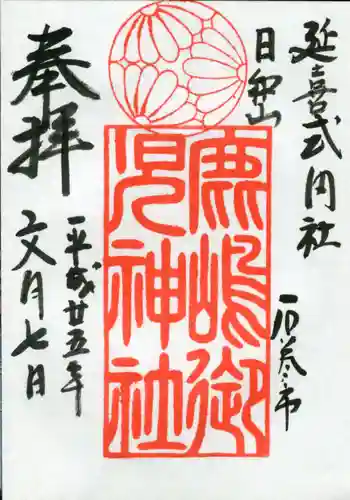 延喜式内社
日和山
石巻市
鹿嶋御
児神社
奉拝
平成廿五年
文月七日